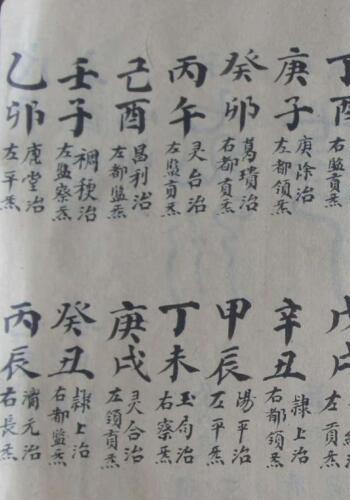 丁酉
右監貢炁
庚子
庚除治
左都領炁
癸卯
葛璝治
右都貢炁
丙午
灵台治
左監貢炁
己酉
昌利治
左都監炁
壬子
稠稉治
左監察炁
乙卯
庞堂治
左平炁
戊戌
左貢炁
辛丑
隸上治
右都領炁
甲辰
湯平治
左平炁
丁未
玉局治
右察炁
庚戌
灵台治
左領貢炁
癸丑
隸上治
右都監炁
丙辰
浦元治
右長炁